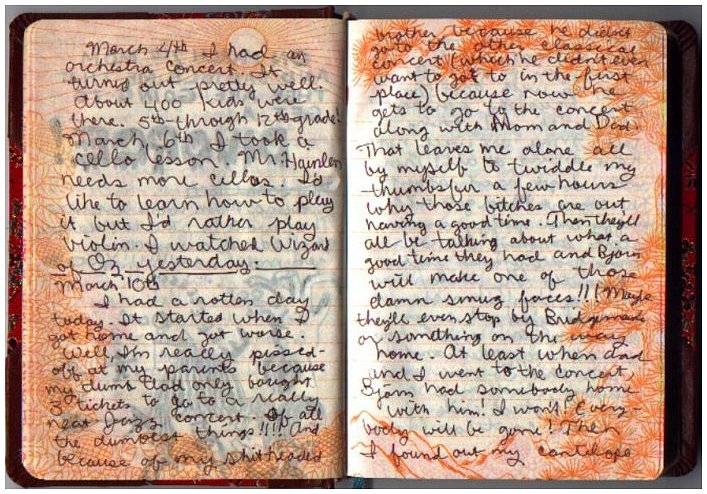 March 4th I had an
orchestra concert. It
turned out pretty well.
About 400 kids were
there. 5th through 12th grade!
March 6th I took a
cello lesson. Mr.
needs more cellos. I'd
like to learn how to play
it but I'd rather play
violin. I watched Wizard
of Oz yesterday.
March 10th
I had a rotten day
today. It started when I
got home and got worse.
Well, I'm really pissed-
off at my parents because
my dumb dad only bought
3 tickets to go to a really
neat Jazz concert. Of all
the dumbest things!!!! And
because of my shitheaded
brother, because he didn't
go to the other classical
concert (which he didn't even
want to got to in the first
place) because now he
gets to go to the concert
along with Mom and Dad.
That leaves me alone all
by myself to twiddle my
thumbs for a few hours
why those bitches are out
having a good time. Then they'll
all be talking about what a
good time they had and Bjorn
will make one of those
damn smug faces!!! Maybe
they'll even stop by Bridgemans
or something on the way
home. At least when dad
and I went to the concert,
Bjorn had somebody home
with him! I won't! Every-
body will be gone! Then
I found out my cantelope